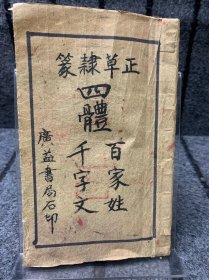 正草隸篆
四體
百家姓
千字文
廣益書局石印